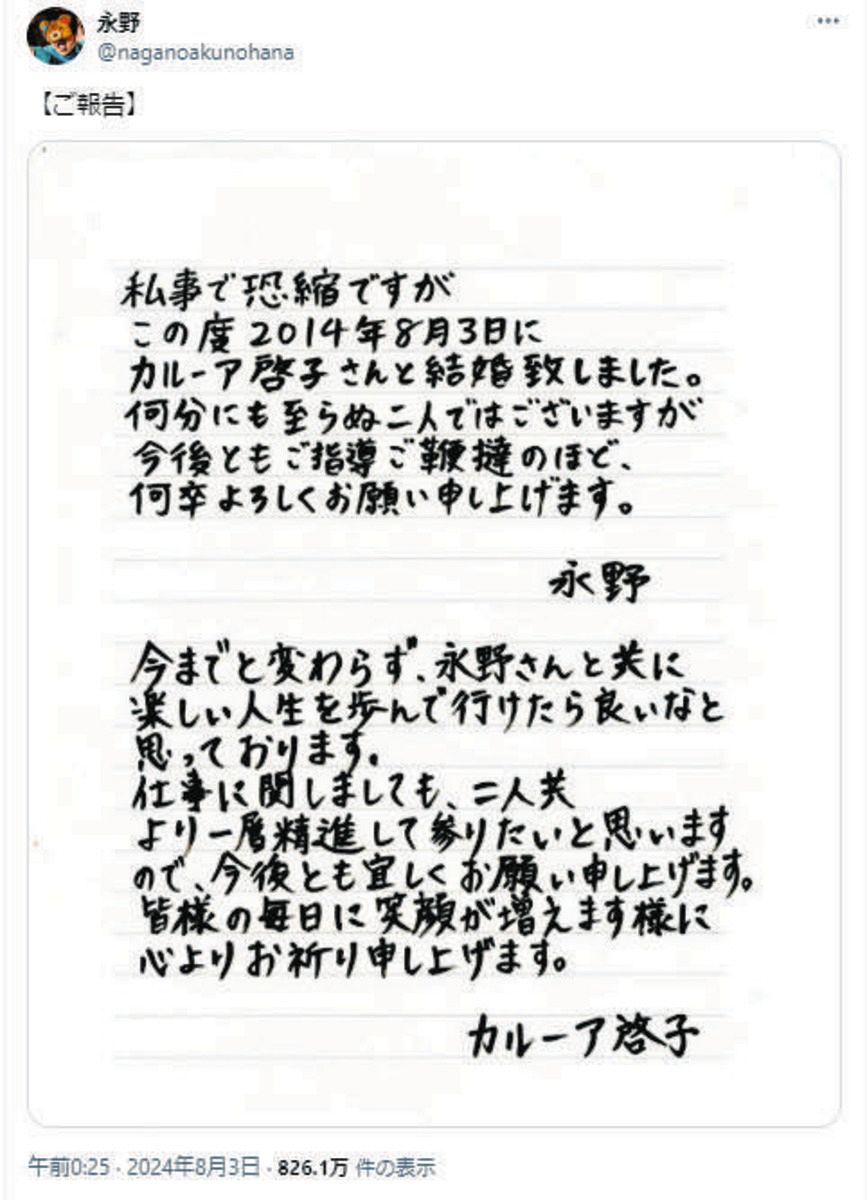 永野
@naganoakunohana
【ご報告】
私事で恐縮ですが
この度2014年8月3日に
カルーア啓子さんと結婚致しました。
何分にも至らぬ二人ではございますが
今後ともご指導ご鞭撻のほど、
何卒よろしくお願い申し上げます。
永野
今までと変わらず、永野さんと共に
楽しい人生を歩んで行けたら良いなと
思っております。
仕事に関しましても、二人共
より一層精進して参りたいと思います
ので、今後とも宜しくお願い申し上げます。
皆様の毎日に笑顔が増えます様に
心よりお祈り申し上げます。
カルーア啓子
午前0:25 · 2024年8月3日 · 826.1万 件の表示